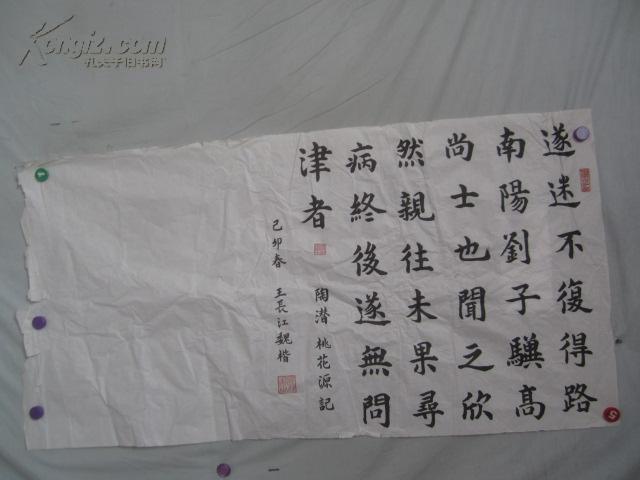 遂迷不復得路
南陽劉子驥高
尚士也聞之欣
然親往未果尋
病終後遂無問
津者
陶潜桃花源記
己卯春 王長江魏楷
Kongfz.com
孔夫子旧书网